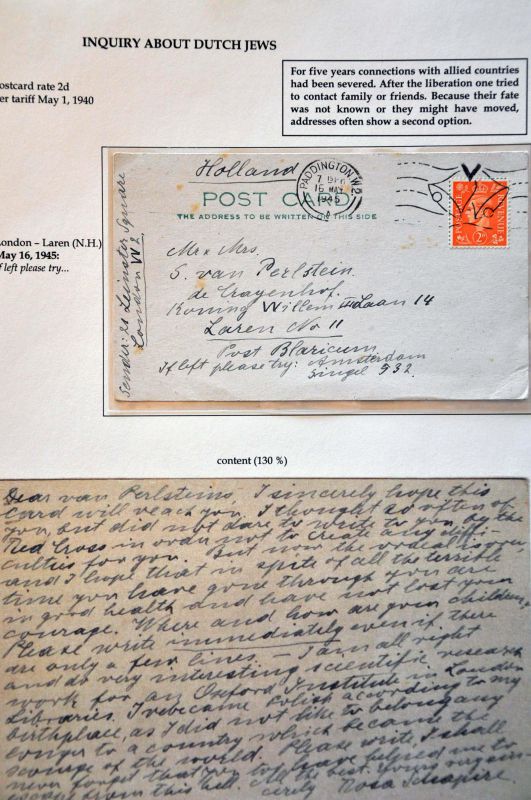 INQUIRY ABOUT DUTCH JEWS
ostcard rate 2d
er tariff May 1, 1940
For five years connections with allied countries
had been severed. After the liberation one tried
to contact family or friends. Because their fate
was not known or they might have moved,
addresses often show a second option.
Holland
PADDINGTON W.2
16 MAY
1945
POST CARD
THE ADDRESS TO BE WRITTEN ON THIS SIDE
POSTAGE REVENUE
2D
ondon – Laren (N.H.)
May 16, 1945:
f left please try...
Sender: 21 Leinster Square
London W2
Mr & Mrs.
S. van Perlstein
de Crayenhof.
Koning Willem III Laan 14
Laren No 11
Post Blaricum
If left please try: Amsterdam
Singel 532.
content (130 %)
Dear van Perlsteins, I sincerely hope this
card will reach you. I thought so often of
you, but did not dare to write to you by the
Red Cross in order not to create any diffi-
culties for you. But now the ordeal is over
and I hope that in spite of all the terrible
time you have gone through you are
in good health and have not lost your
courage. Where and how are your children.
Please write immediately even if there
are only a few lines. – I am all right
and do very interesting scientific research
work for an Oxford Institute in London
Libraries. I became Polish according to my
birthplace, as I did not like to belong any
longer to a country which became the
scourge of the world. Please write. I shall
never forget that you have helped me to
escape from this hell. All the best. Yours very sin-
cerely Rosa Schapire.